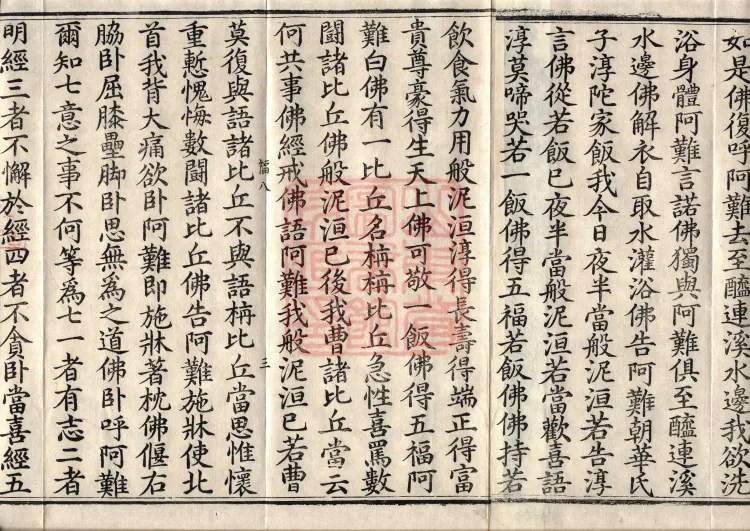 如是佛復呼阿難去至醯連溪水邊我欲洗
浴身體阿難言諾佛獨與阿難俱至醯連溪
水邊佛解衣自取水灌浴佛告阿難朝華氏
子淳陀家飯我今日夜半當般泥洹若告淳
言佛從若飯已夜半當般泥洹若當歡喜語
淳莫啼哭若一飯佛得五福若飯佛佛持若
飲食氣力用般泥洹淳得長壽得端正得富
貴尊豪得生天上佛可敬一飯佛得五福阿
難白佛有一比丘名栴栴比丘急性喜罵數
鬪諸比丘佛般泥洹已後我曹諸比丘當云
何共事佛經戒佛語阿難我般泥洹已若曹
莫復與語諸比丘不與語栴比丘當思惟懷
重慙愧悔數鬪諸比丘佛告阿難施牀使北
首我背大痛欲卧阿難即施牀著枕佛偃右
脇卧屈膝壘脚卧思無為之道佛卧呼阿難
爾知七意之事不何等為七一者有志二者
明經三者不懈於經四者不貪卧當喜經五